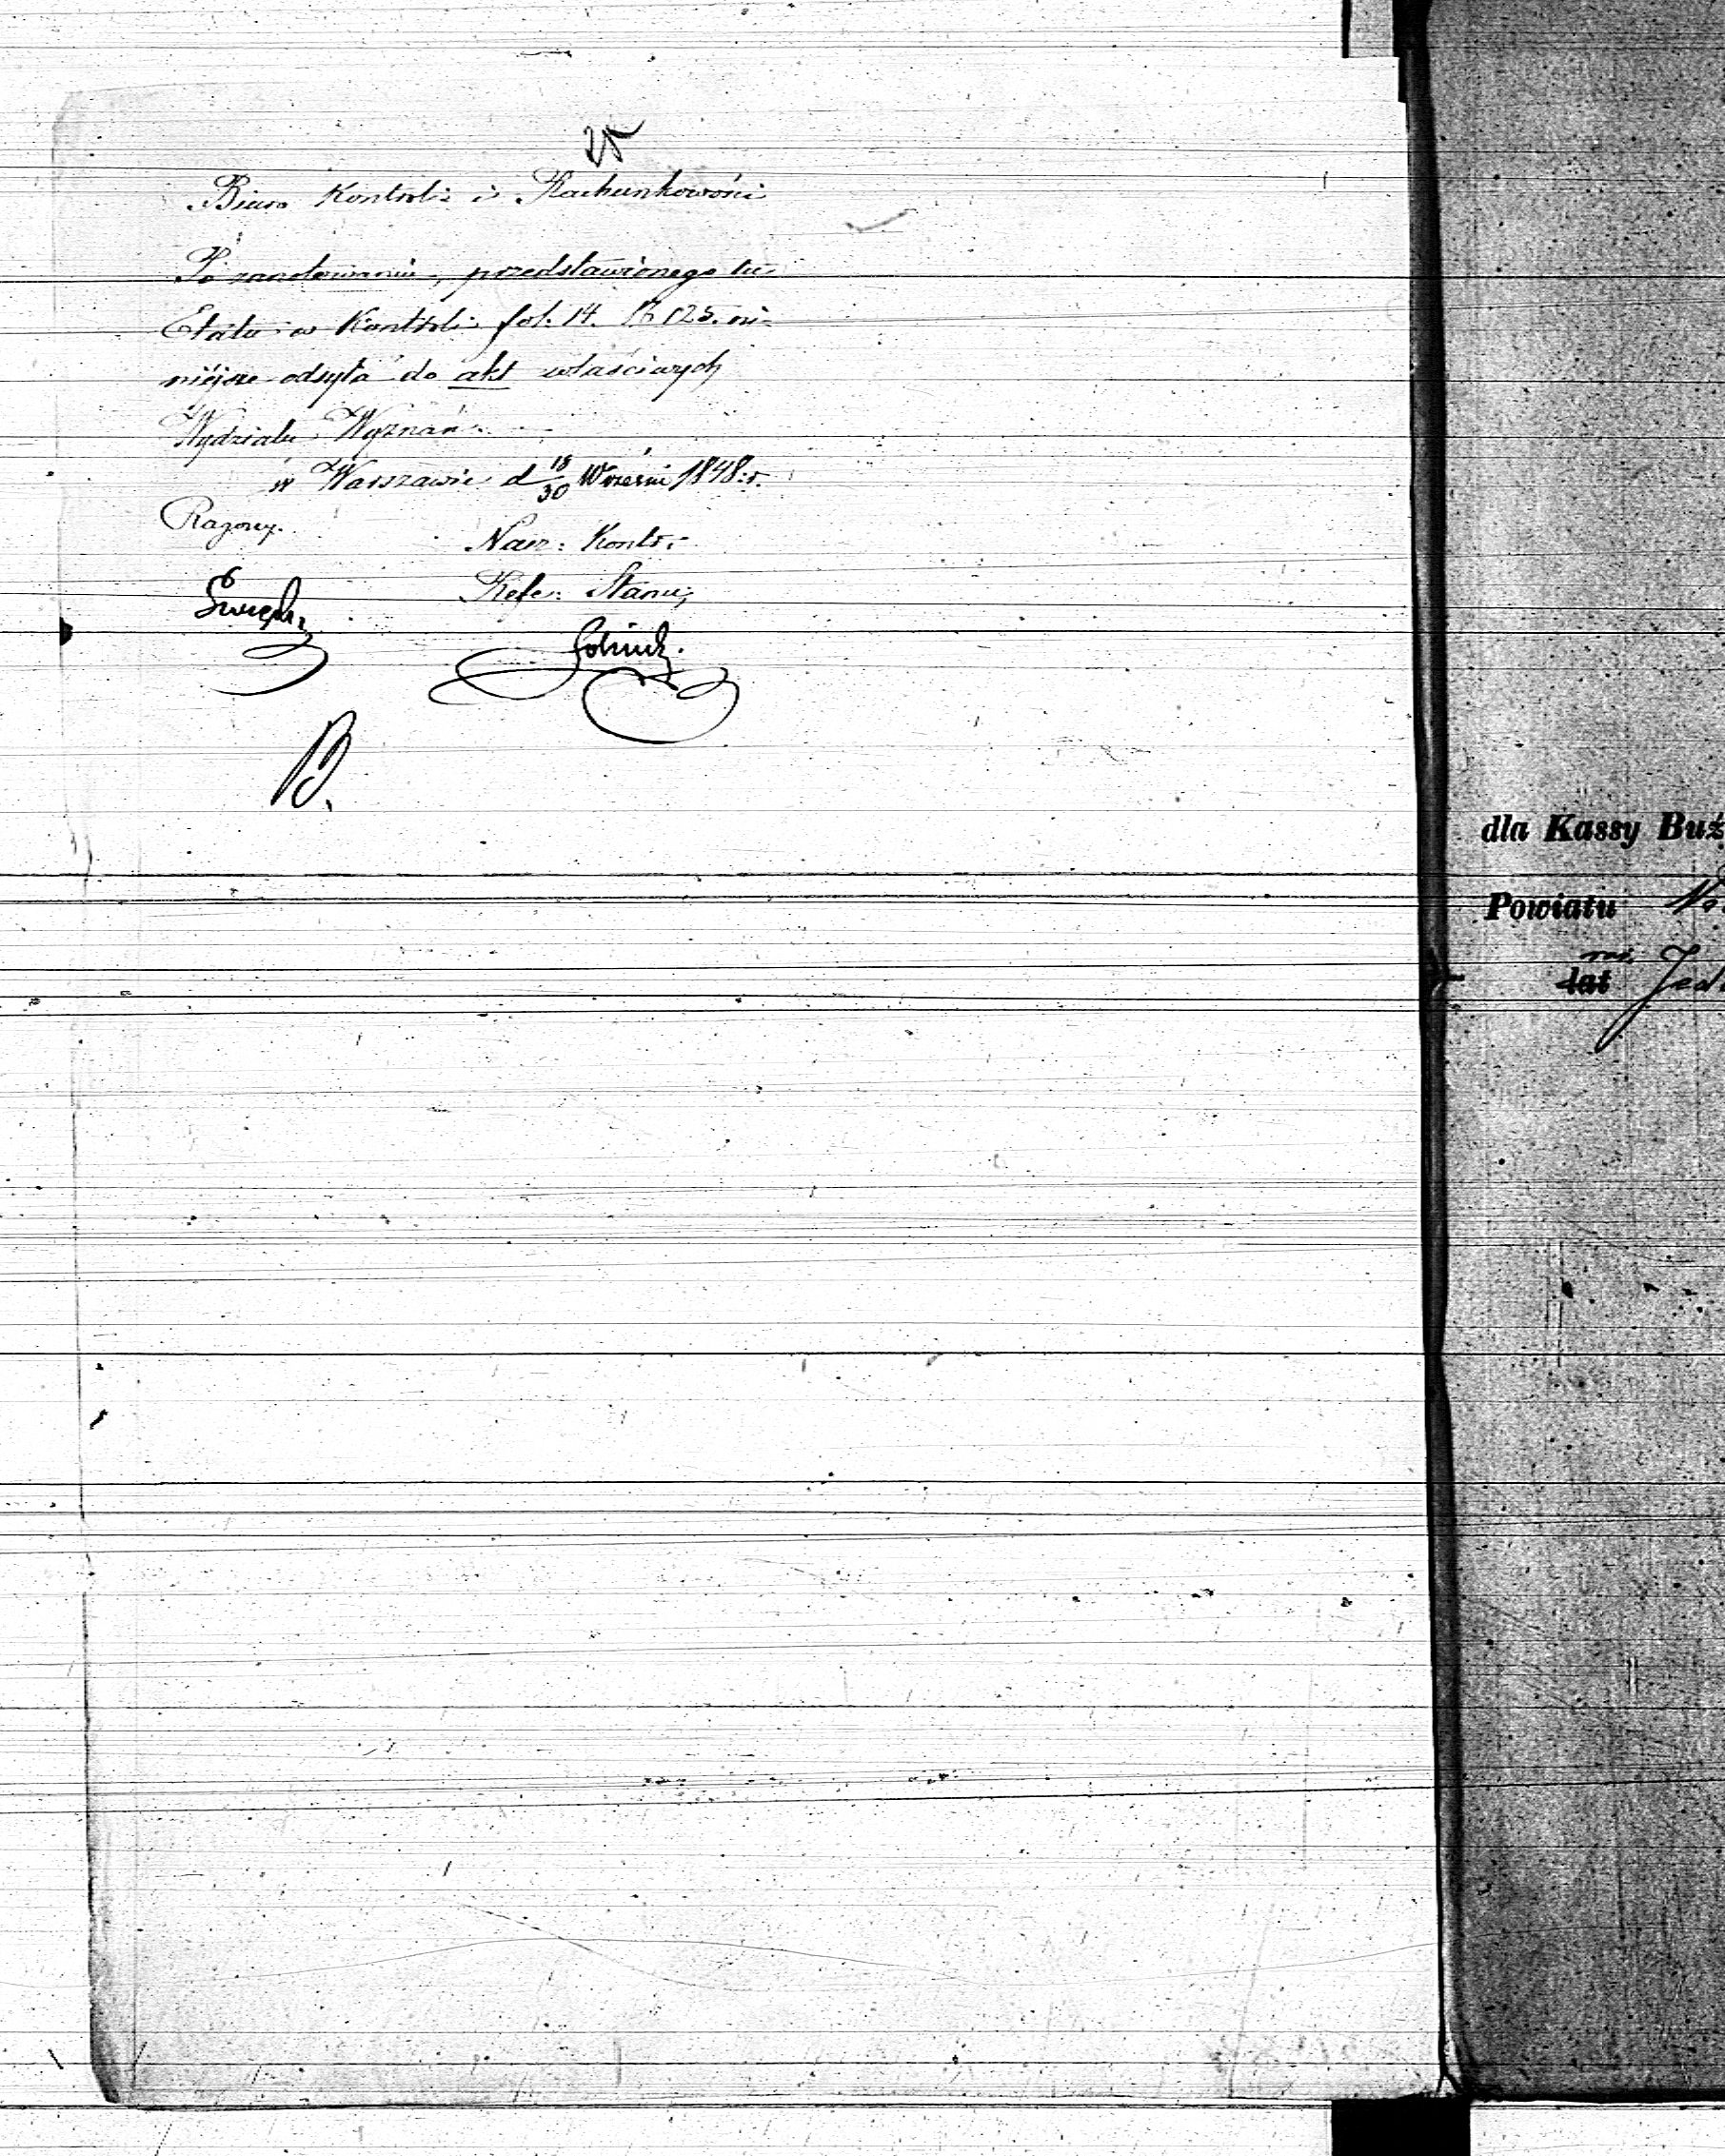 25
Biuro Kontroli i Rachunkowości
Po zanotowaniu, przedstawionego tu
Etatu w Kontroli fol. 14. № 125. ni-
niéjsze odsyła do akt właściwych
Wydziału Wyznań.
w Warszawie d 18/30 Wrześni 1848 r.
Nacz: Kontr:
Refer: Stanu,
B.
dla Kassy Buż
Powiatu
lat